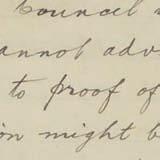 council
cannot adv
to proof of
on might b